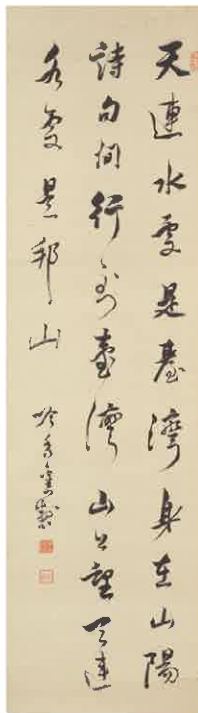 天連水處是臺灣身在山陽
詩句間行到臺灣山上望天連
水處是邦山
吟香舊製